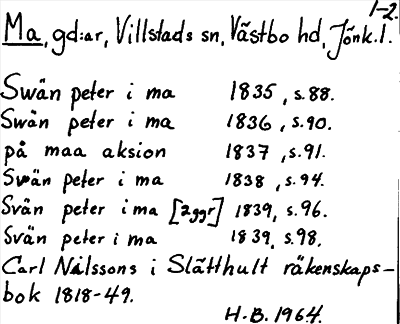 1-2.
Ma, gd:ar, Villstads sn, Västbo hd, Jönk.l.
Swän peter i ma 1835, s.88.
Swän peter i ma 1836, s.90.
på maa aksion 1837, s.91.
Swän peter i ma 1838, s.94.
Svän peter i ma [2ggr] 1839, s.96.
Svän peter i ma 1839, s.98.
Carl Nilssons i Slätthult räkenskaps-
bok 1818-49.
H.B. 1964.